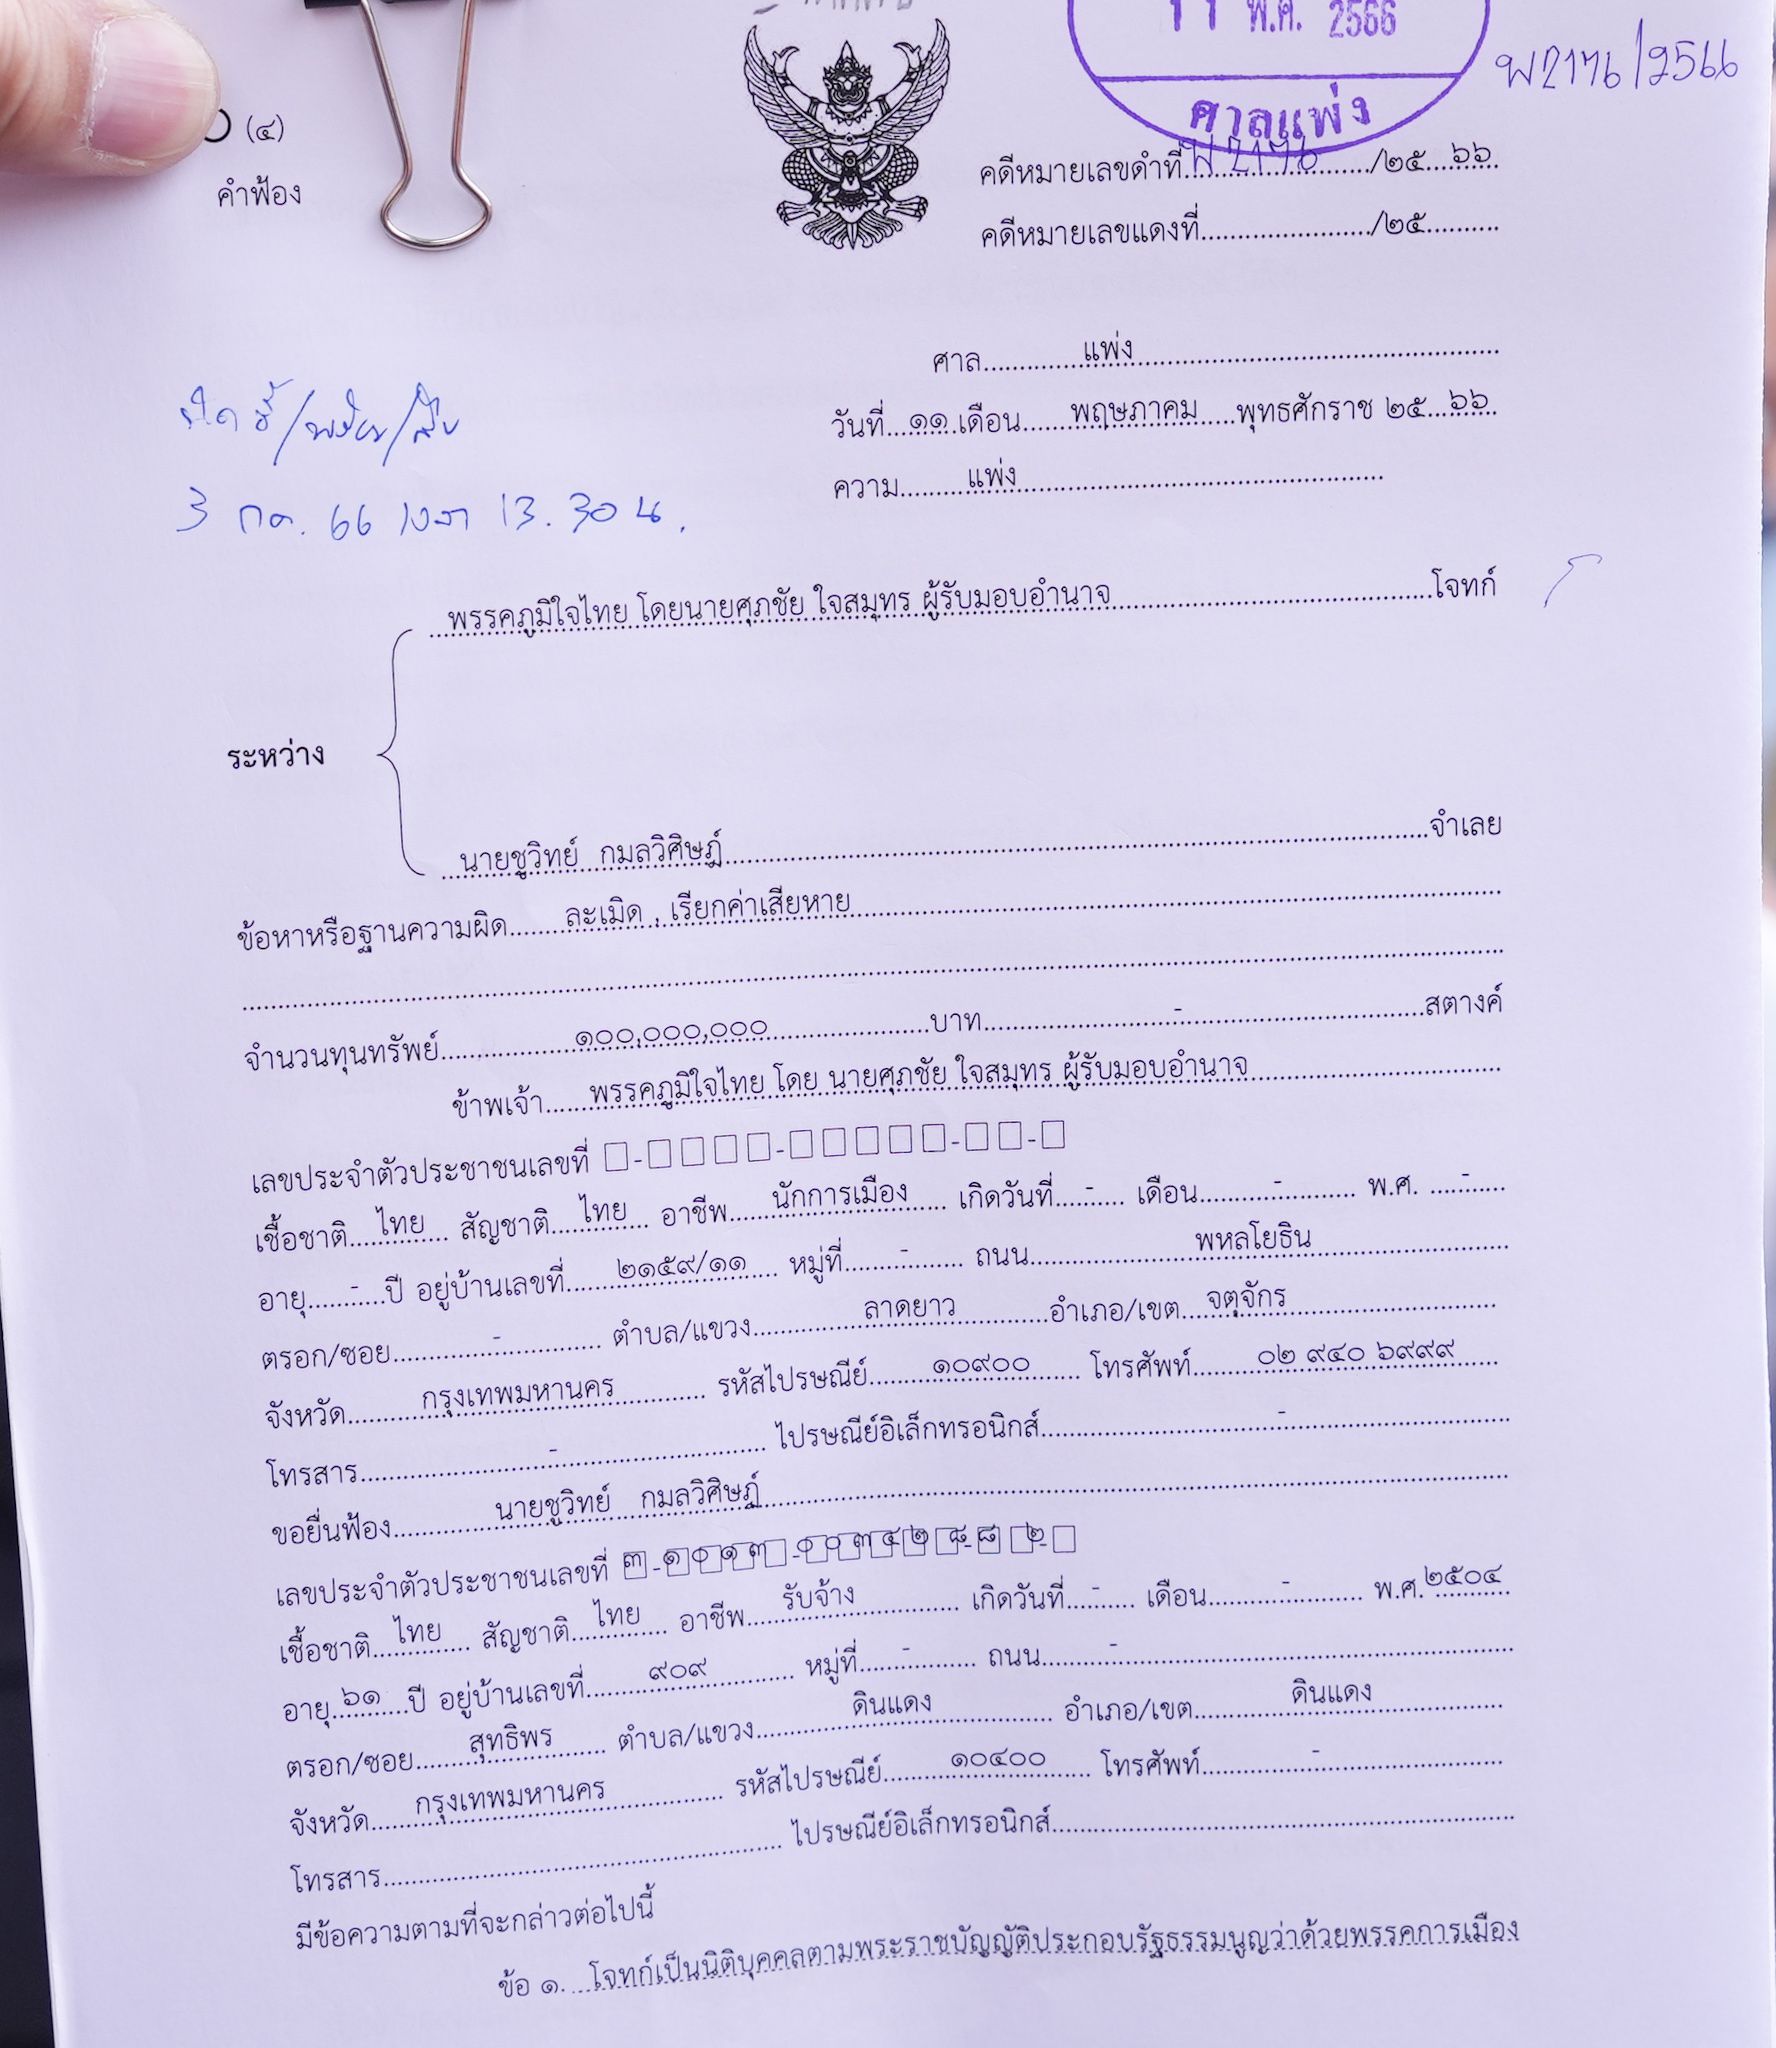 ๑๑ พ.ค. 2566
ศาลแพ่ง
พ2176/2566
(๔)
คำฟ้อง
คดีหมายเลขดำที่ พ 2176 /๒๕ ๖๖
คดีหมายเลขแดงที่ /๒๕
ศาล แพ่ง
วันที่ ๑๑ เดือน พฤษภาคม พุทธศักราช ๒๕ ๖๖
ความ แพ่ง
3 กค. 66 เวลา 13.30 น.
พรรคภูมิใจไทย โดยนายศุภชัย ใจสมุทร ผู้รับมอบอำนาจ โจทก์
ระหว่าง
นายชูวิทย์ กมลวิศิษฎ์ จำเลย
ข้อหาหรือฐานความผิด ละเมิด , เรียกค่าเสียหาย
จำนวนทุนทรัพย์ ๑๐๐,๐๐๐,๐๐๐ บาท - สตางค์
ข้าพเจ้า พรรคภูมิใจไทย โดย นายศุภชัย ใจสมุทร ผู้รับมอบอำนาจ
เลขประจำตัวประชาชนเลขที่
เชื้อชาติ ไทย สัญชาติ ไทย อาชีพ นักการเมือง เกิดวันที่ - เดือน - พ.ศ. -
อายุ - ปี อยู่บ้านเลขที่ ๒๑๕๙/๑๑ หมู่ที่ - ถนน พหลโยธิน
ตรอก/ซอย - ตำบล/แขวง ลาดยาว อำเภอ/เขต จตุจักร
จังหวัด กรุงเทพมหานคร รหัสไปรษณีย์ ๑๐๙๐๐ โทรศัพท์ ๐๒ ๙๔๐ ๖๙๙๙
โทรสาร - ไปรษณีย์อิเล็กทรอนิกส์ -
ขอยื่นฟ้อง นายชูวิทย์ กมลวิศิษฎ์
เลขประจำตัวประชาชนเลขที่
เชื้อชาติ ไทย สัญชาติ ไทย อาชีพ รับจ้าง เกิดวันที่ - เดือน - พ.ศ. ๒๕๐๔
อายุ ๖๑ ปี อยู่บ้านเลขที่ ๙๐๙ หมู่ที่ - ถนน -
ตรอก/ซอย สุทธิพร ตำบล/แขวง ดินแดง อำเภอ/เขต ดินแดง
จังหวัด กรุงเทพมหานคร รหัสไปรษณีย์ ๑๐๔๐๐ โทรศัพท์ -
โทรสาร ไปรษณีย์อิเล็กทรอนิกส์
มีข้อความตามที่จะกล่าวต่อไปนี้
ข้อ ๑. โจทก์เป็นนิติบุคคลตามพระราชบัญญัติประกอบรัฐธรรมนูญว่าด้วยพรรคการเมือง